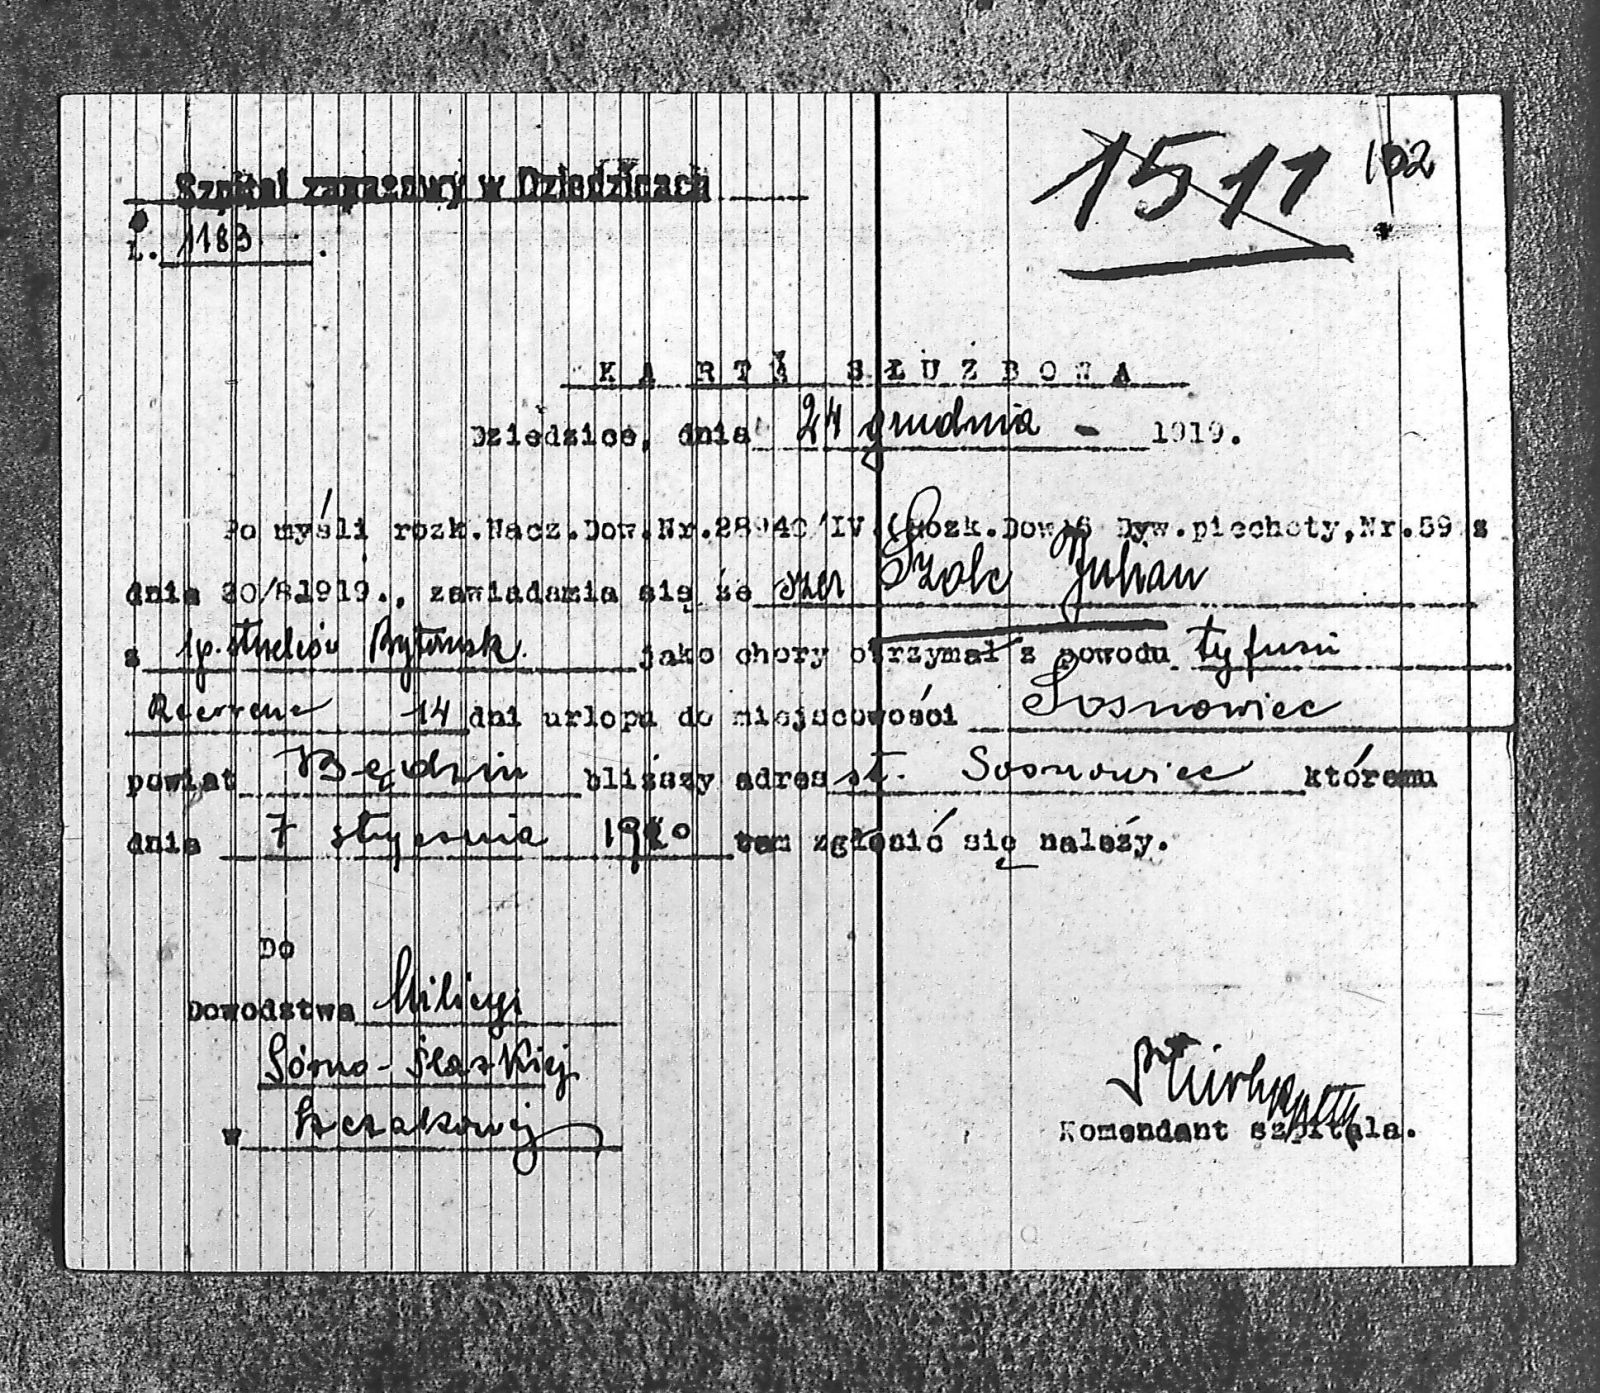 1511 102
Szpital zapasowy w Dziedzicach
L. 1183.
KARTA SŁUŻBOWA
Dziedzice, dnia 24 grudnia - 1919.
Po myśli rozk.Nacz.Dow.Nr.28940/IV.(Rozk.Dow.6 Dyw.piechoty,Nr.59 z
dnia 30/8.1919., zawiadamia się że szer Szolc Juljan
z 1p. strzelców Bytomsk. jako chory otrzymał z powodu tyfusu
14 dni urlopu do miejscowości Sosnowiec
powiat Będzin bliższy adres st. Sosnowiec któremu
dnia 7 stycznia 1920 tam zgłosić się należy.
Do
Dowodstwa Milicyi
Górno-Śląskiej
w Szczakowej
Komendant szpitala.